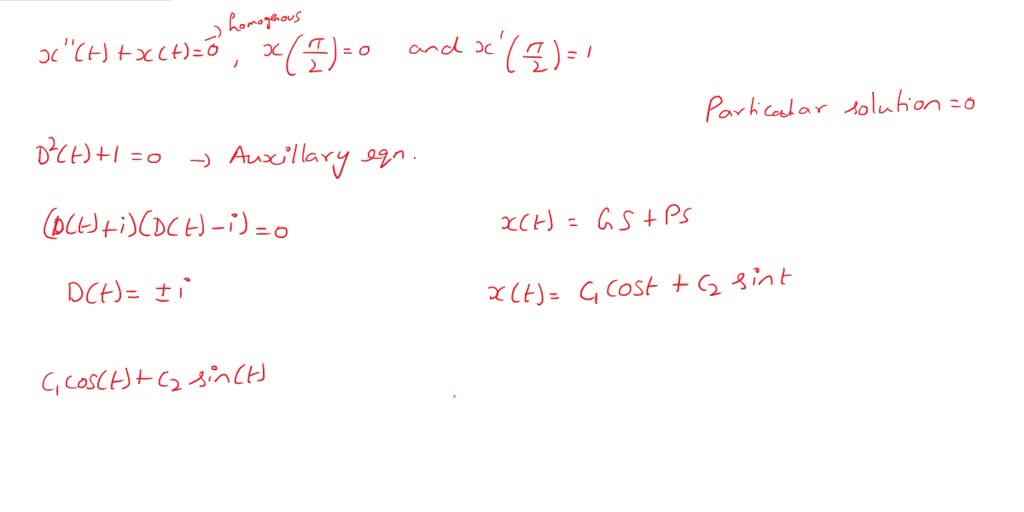 x''(t) + x(t) = 0 → homogenous , x(π/2) = 0 and x'(π/2) = 1
Particular solution = 0
D²(t) + 1 = 0 → Auxillary eqn.
(D(t) + i)(D(t) - i) = 0
x(t) = GS + PS
D(t) = ± i
x(t) = C₁ cost + C₂ sint
C₁ cos(t) + C₂ sin(t)